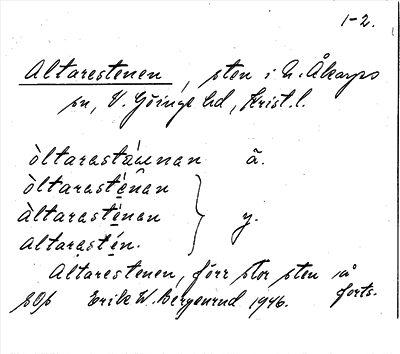 1-2.
Altarestenen, sten i N. Åkarps
sn, V. Göinge hd, Krist. l.
òltarastäu̯nan ä.
òltarastènan
àltarastènan y.
altarastén.
Altarestenen, förr stor sten på
forts.
SOp Erik W. Bergenrud 1946.